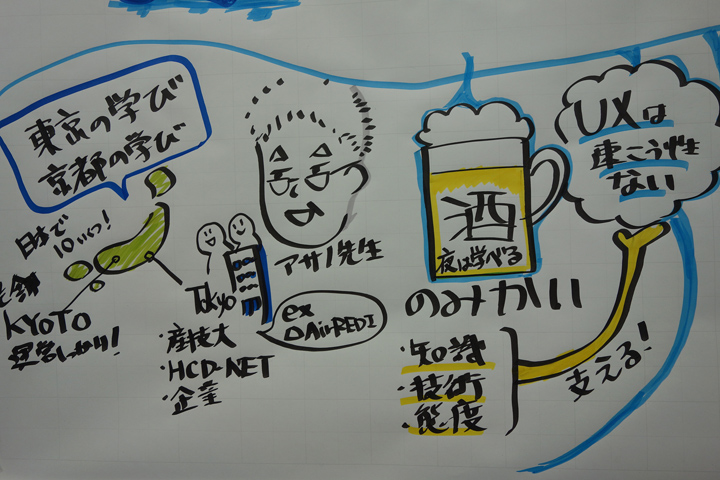 東京の学び
京都の学び
日本で
10いつ!
KYOTO
運営しっかり!
Tokyo
・産技大
・HCD-NET
・企業
アサノ先生
ex
△AirREDI
酒
夜は学べる
のみかい
・知識
・技術
・態度
支える!
UXは
速こう性
ない